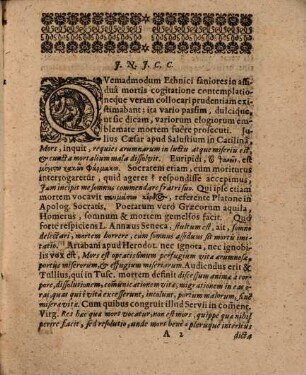 J. N. J. C. C.
QVemadmodum Ethnici saniores in assi-
duâ mortis cogitatione contemplatio-
neque veram collocari prudentiam exi-
stimabant: ita vario passim, dulcique,
ut sic dicam, variorum elogiorum em-
blemate mortem fuêre prosecuti. Ju-
lius Cæsar apud Salustium in Catilina,
Mors, inquit, requies ærumnarum in luctu atque miseriis est,
& cuncta mortalium mala dissolvit. Euripidi,
κακῶν φάρμακον. Socratem etiam, cum moriturus
interrogaretur, quid ageret? respondisse accepimus:
Jam incipit me somnus commendare fratri suo. Qui ipse etiam
mortem vocavit referente Platone in
Apolog. Socratis. Poëtarum verò Græcorum aquila
Homerus, somnum & mortem gemellos facit. Quò
forte respiciens L. Annæus Seneca, stultum est, ait, somno
delectari, mortem horrere, cum somnus assiduus sit mortis imi-
tatio. Artabani apud Herodot. nec ignota, nec ignobi-
lis vox est, Mors est optatissimum perfugium vitæ ærumnosæ,
portus miserorum, & effugium miseriarum. Audiendus erit &
Tullius, qui in Tusc. mortem definit discessum animæ à cor-
pore, dissolutionem, comunicationem vitæ, migrationem in eas
oras, quas qui è vita excesserunt, incolunt, portum malorum, finẽ
miseræ vitæ. Cum quibus congruit illud Servii in coment.
Virg. Res hæc quæ mors vocatur, non est mors, quippe quæ nihil
perire facit, sed resolutio, unde mors benè à plerisque interitus
A 2 dicta